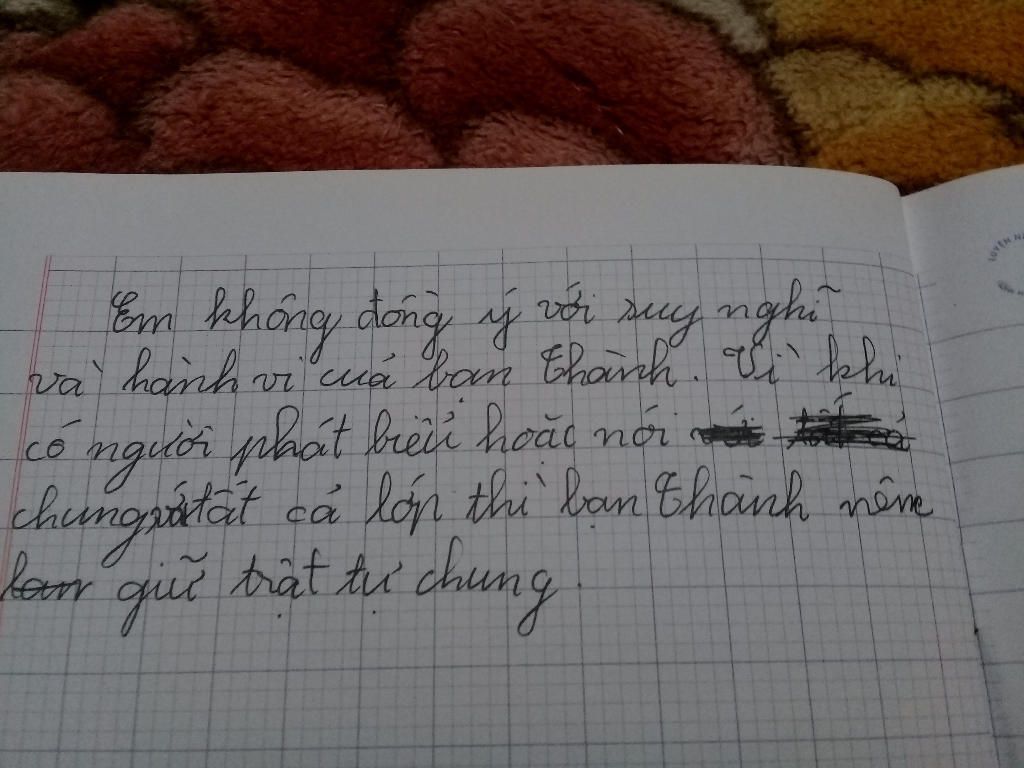 Em không đồng ý với suy nghĩ
và hành vi của bạn Thành. Vì khi
có người phát biểu hoặc nói
chung với tất cả lớp thì bạn Thành nên
giữ trật tự chung.
LUYỆN